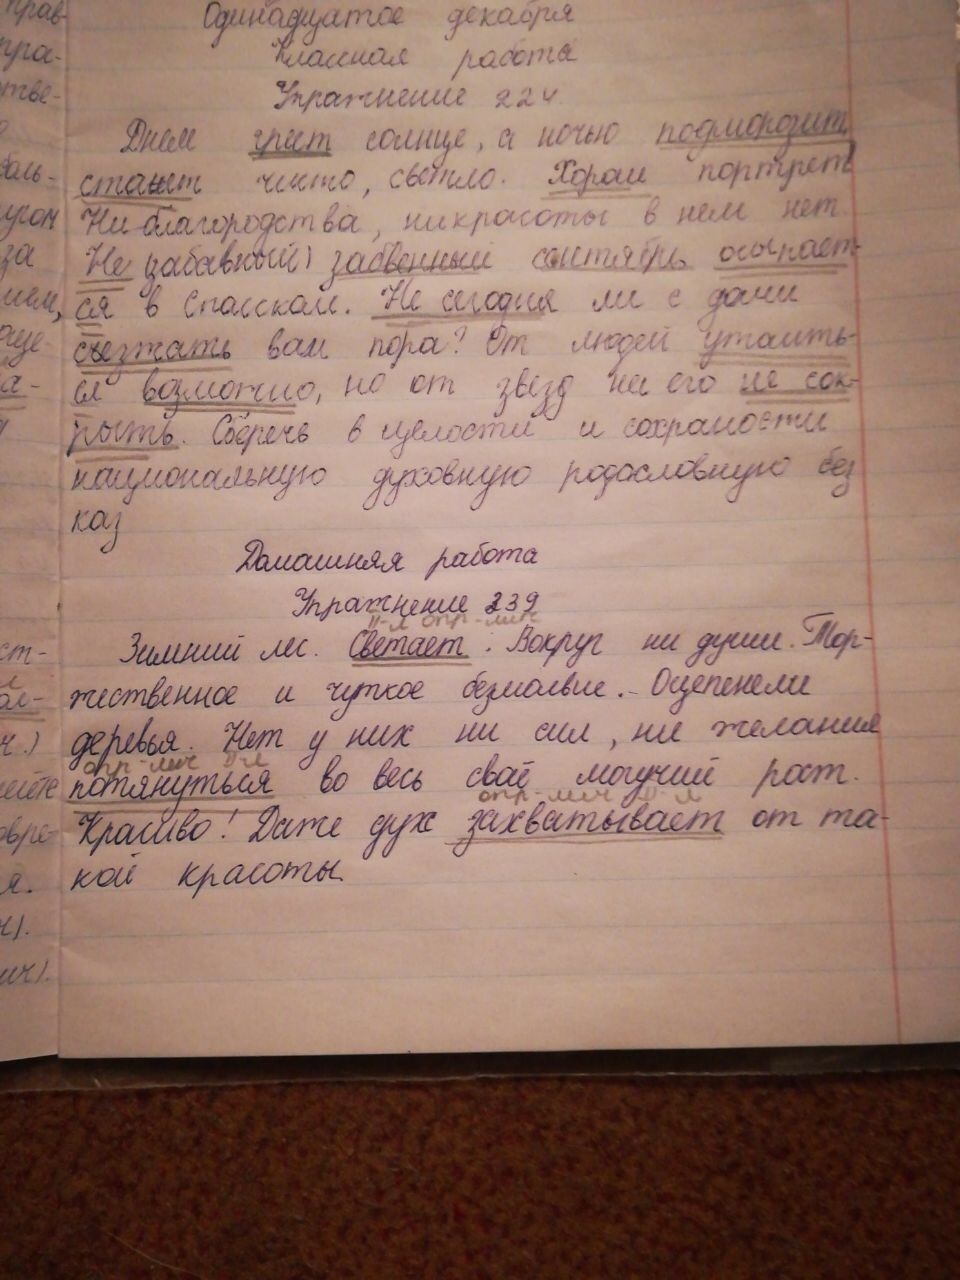 Одинадцатое декабря
Классная работа
Упражнение 224.
Днем греет солнце, а ночью подморозит,
станет чисто, светло. Хорош портрет
Ни благородства, ни красоты в нем нет.
Не забавный) забвенный сентябрь осыпает-
ся в Спасском. Не сегодня ли с дачи
съезжать вам пора? От людей утаить-
ся возможно, но от звезд ни его не сок-
рыть. Сберечь в целости и сохранности
национальную духовную родословную без
каз
Домашняя работа
Упражнение 239
II-л опр-лич
Зимний лес. Светает. Вокруг ни души. Тор-
жественное и чуткое безмолвие. Оцепенели
деревья. Нет у них ни сил, ни желания
опр-лич II-л
потянуться во весь свой могучий рост.
опр-лич II-л
Красиво! Даже дух захватывает от та-
кой красоты.